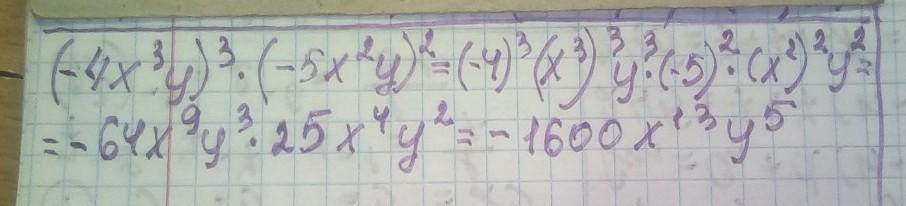 (-4x³y)³·(-5x²y)²=(-4)³(x³)³y³·(-5)²·(x²)²y²=
=-64x⁹y³·25x⁴y²=-1600x¹³y⁵